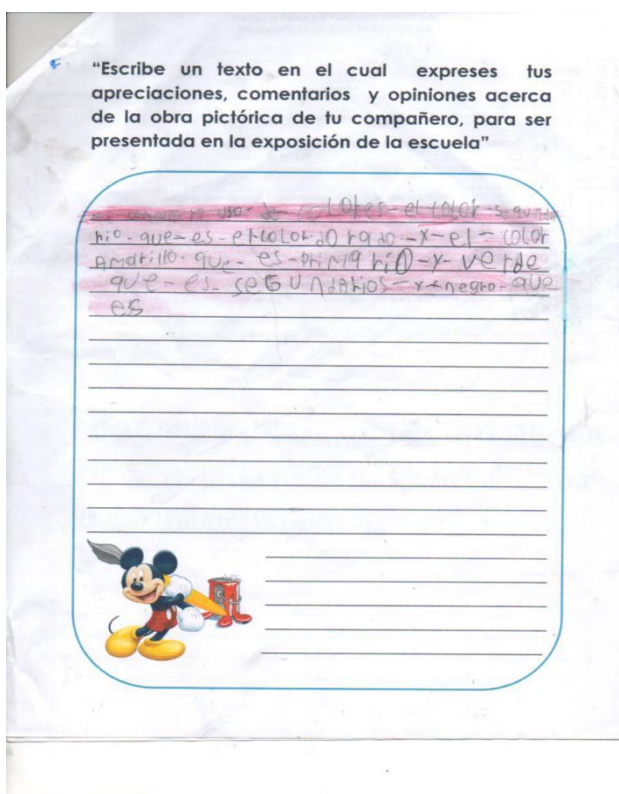 "Escribe un texto en el cual expreses tus
apreciaciones, comentarios y opiniones acerca
de la obra pictórica de tu compañero, para ser
presentada en la exposición de la escuela"
uso - de colores - el color segunda
hio. que - es - el color dorado - y - el - color
Amarillo. que - es - primario - y - verde
que - es - seGUndArios - y - negro - que
es